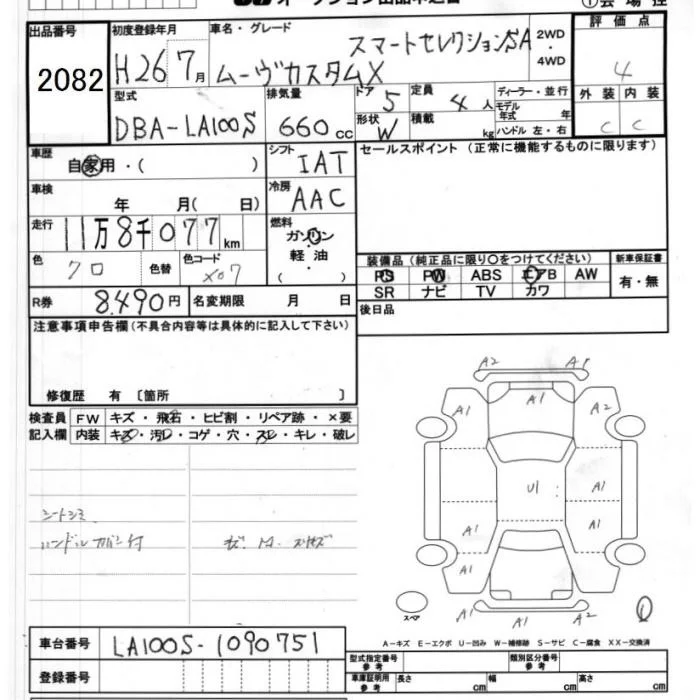 出品番号 初度登録年月 車名・グレード 2WD・4WD 評価点
2082 H26 7月 ムーヴカスタムX スマートセレクションSA 4
型式 排気量 ドア 5 定員 4人 ディーラー・並行 外装 内装
DBA-LA100S 660cc 形状 W 積載 kg モデル年式 年 C C
ハンドル 左・右
車歴 自家用・( ) シフト IAT セールスポイント (正常に機能するものに限ります)
車検 年 月( 日) 冷房 AAC
走行 11万8千077km 燃料 ガソリン・軽油 ( )
色 クロ 色替 色コード X07
装備品 (純正品に限り○をつけてください) 新車保証書
PS PW ABS エアB AW 有・無
SR ナビ TV カワ
R券 8,490円 名変期限 月 日 後日品
注意事項申告欄(不具合内容等は具体的に記入して下さい)
修復歴 有 〔箇所 〕
検査員 FW キズ・飛石・ヒビ割・リペア跡・×要
記入欄 内装 キズ・汚レ・コゲ・穴・スレ・キレ・破レ
A2 A1
A1 A1 A2
U1 A1
A1 A1
A1
シートシミ
ハンドルカバー付
スペア A1 A1 A2 1
車台番号 LA100S-1090751
A-キズ E-エクボ U-凹み W-補修跡 S-サビ C-腐食 XX-交換済
登録番号 型式指定番号 参考 類別区分番号 参考
車庫証明用 参考 長さ cm 幅 cm 高さ cm